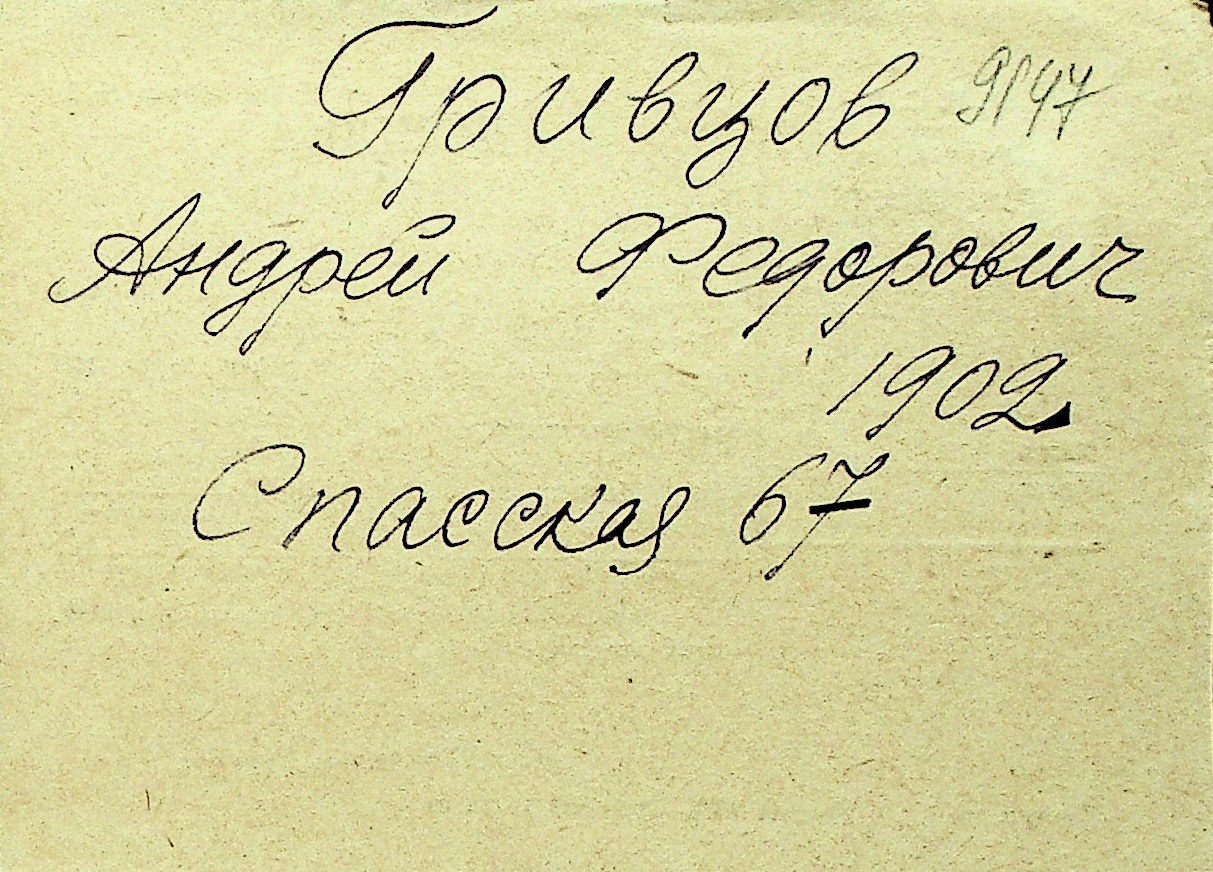 Гривцов 9197
Андрей Федорович
1902
Спасская 67